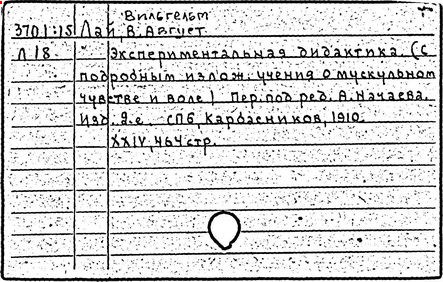 Вильгельм
3701:15 Лай, В. Август.
Л 18. Экспериментальная дидактика (с
подробным излож. учения о мускульном
чувстве и воле). Пер. под ред. А. Начаева.
Изд. 2-е. СПб, Карбасников, 1910.
XXIV, 464 стр.